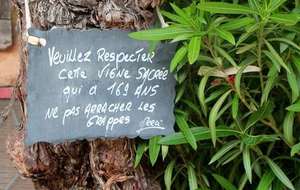 Veuillez Respecter
Cette Vigne Sacrée
qui a 161 Ans
Ne pas arracher les
grappes Merci